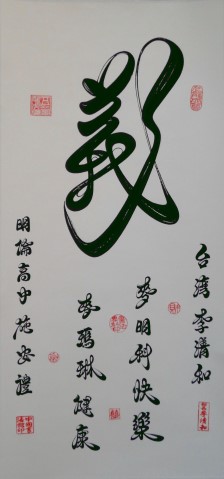 義
台湾李清和
麥明利快樂
麥瑪琳健康
明倫高中施安禮